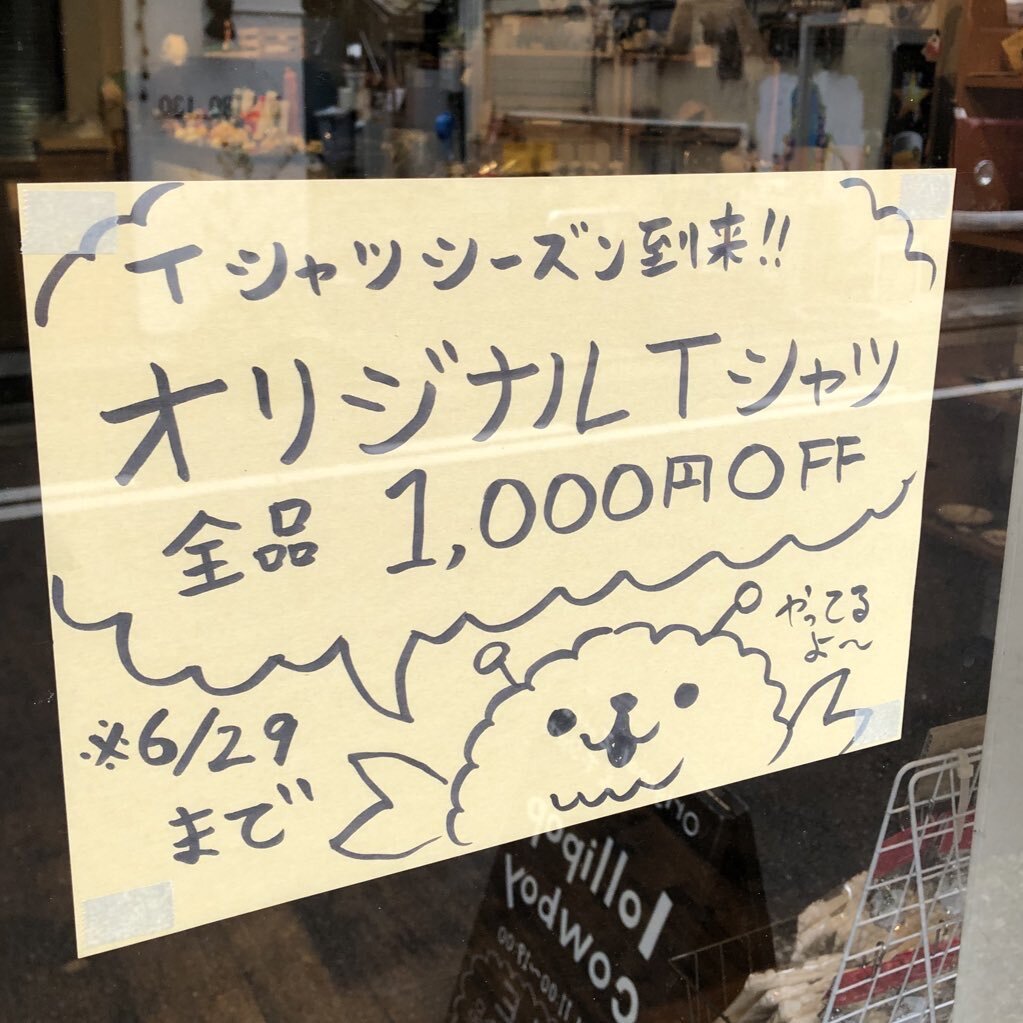 Tシャツシーズン到来!!
オリジナルTシャツ
全品 1,000円OFF
やってる
よ〜
※6/29
まで
lollipop
cowboy